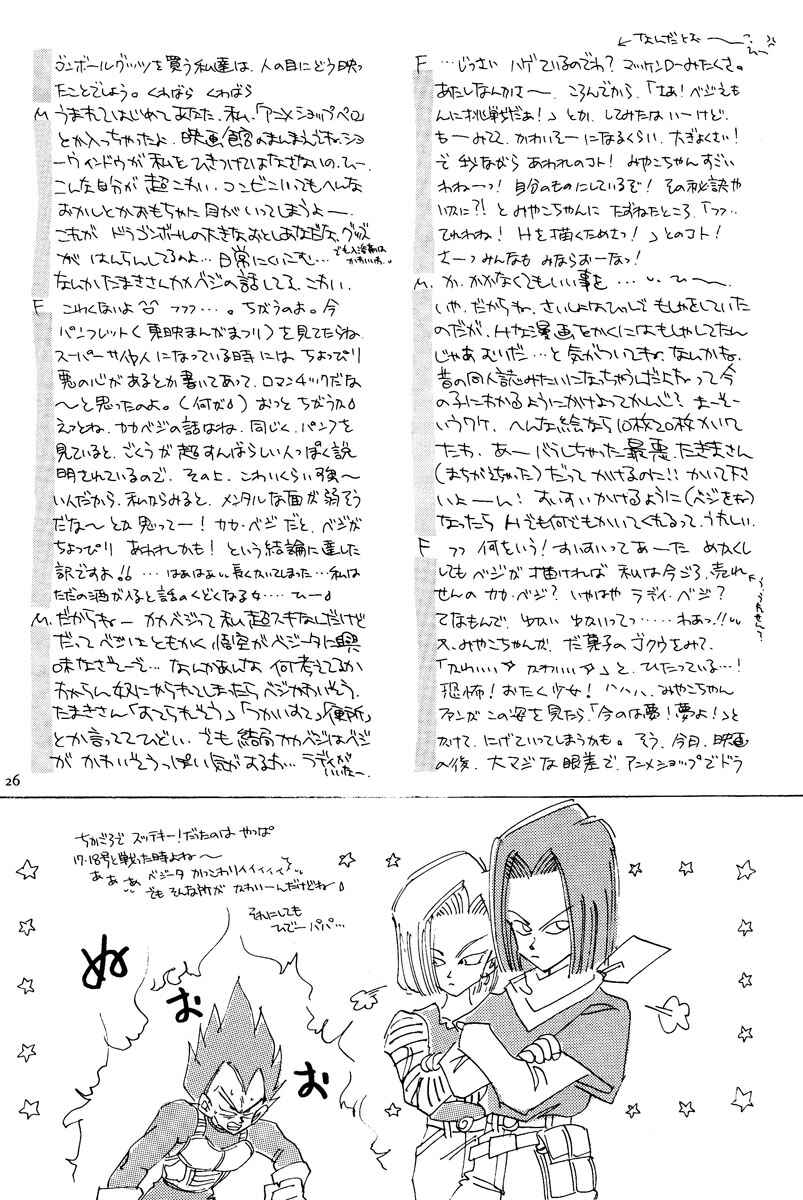 ゴンボールグッツを買う私達は、人の目にどう映っ
たことでしょう。くわばら くわばら
M うまれてはじめて あなた、私、「アニメショップペロ」
とか入っちゃったよ、映画館のまんまえでネ。ショ
ーウィンドウが私をひきつけてはなさないの。ひー、
こんな自分が超こわい。コンビニいってもへんな
おかしとかおもちゃに目がいってしまうよー。
これが ドラゴンボールの大きなおとしあなだな、グッズ
が はんらんしてるのよ…日常にくいこむ…
なんかたまきさんカカベジの話してる、こわい。
F こわくないよ フフフ…。ちがうのよ。今
パンフレット(東映まんがまつり)を見てたらね、
スーパーサイヤ人になっている時には ちょっぴり
悪の心があるとか書いてあって、ロマンチックだな
〜と思ったのよ。(何が)おっと ちがうわ
えっとね、カカベジの話はね、同じく、パンフを
見ていると、ごくうが超すんばらしい人っぽく説
明されているので、その上、こわいくらい強〜
いんだから、私からみると、メンタルな面が弱そう
だな〜とか思ってー!カカ・ベジだと、ベジが
ちょっぴり あわれかも!という結論に達した
訳ですよ!!…はあはぁ、長くかいてしまった…私は
ただの酒が入ると話のくどくなる女… ひー
M だからねー カカベジって私超スキなんだけど
だってベジはともかく悟空がベジータに興
味なさそーで… なんかあんな何考えてるか
わからん奴にやられてしまったらベジかわいそう。
たまきさん「おてられそう」「つかいすて」「便所」
とか言っててひどい。でも結局カカベジはベジ
が かわいそうっぽい気がするわ…ラディが
いいなー、
26
← なんだとお〜
F …じっさい ハゲているのでわ?マッケンローみたくさ。
あたしなんかさー、ころんでから、「さぁ!ベジえも
んに挑戦だぁ!」とか、してみたはいーけど、
もーみてて、かわいそーになるくらい、大ぎょくさい!
で 我ながら あわれのコト!みやこちゃん すごい
わねーっ!自分のものにしているで!その秘訣や
いかに?!とみやこちゃんに たずねたところ、「フフ…
てれわね!Hを描くためさっ!」とのコト!
さーっ みんなも みならおーなっ!
M か、かかなくてもいい事を … ひー、
いや、だからね、さいしょはひっしで もしゃをしていた
のだが、Hな漫画をかくにはもしゃしてたん
じゃあむりだ…と気がついてね、なんかね、
昔の同人誌みたいになっちゃうんだよね、って今
の子にわかるようにかけよってかんじ?まーそー
いうワケ、へんな絵なら10枚20枚かいて
たわ、あーバラしちゃった最悪、たきまさん
(まちがえちゃった)だって かけるのに!!かいて下さ
いよーん!すいすいかけるように(ベジをね)
なったら Hでも何でもかいてくれるって、うれしい。
F フフ 何をいう!すいすいってあーた めかくし
してもベジが描ければ 私は今ごろ、売れ
せんの カカ・ベジ?いやはや ラディ・ベジ?
てなもんで、ゆかい ゆかいってっ……わあっ!!
又、みやこちゃんが、だ菓子の ゴクウをみて、
「かわいい かわいい」と、ひたっている…!
恐怖!おたく少女!ハハハ、みやこちゃん
ファンが この姿を見たら「今のは夢!夢よ!」と
かけて、にげていってしまうかも。そう、今日、映画
の後、大マジな眼差で、アニメショップでドラ
ちかごろで ズッテキー!だったのは やっぱ
17・18号と戦った時よね〜
あぁぁ ベジータ かっこわりィィィィィ
でもそんな所が かわいーんだけどねー
それにしても
ひでーパパ…
ぬ
お
お